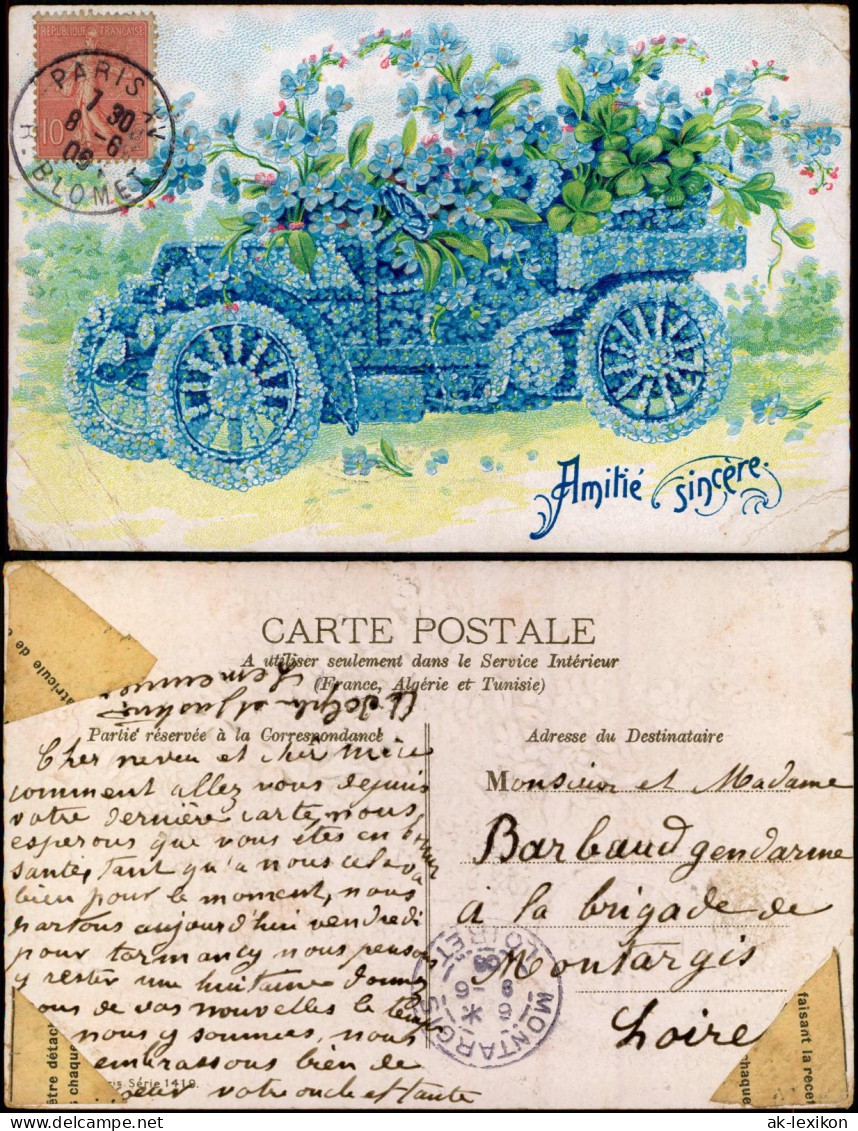 REPUBLIQUE FRANÇAISE
10
PARIS XV
7 30
8 - 6
09
R. BLOMET
Amitié sincère.
CARTE POSTALE
A utiliser seulement dans le Service Intérieur
(France, Algérie et Tunisie)
Adolphe et
Partie réservée à la Correspondance
Adresse du Destinataire
Cher neveu et cher nièce
comment allez vous depuis
votre dernière carte, nous
esperons que vous étes en bonne
santé, tant qu'a nous cela va
bien pour le moment, nous
partons aujourd'hui vendredi
pour tormancy nous pensons
y rester une huitaine donnez
nous de vos nouvelles le temps
nous y sommes, nous
embrassons bien de
cœur votre oncle et tante
Monsieur et Madame
Barbaud gendarme
à la brigade de
Montargis
Loire
MONTARGIS
LOIRET
9 - 6
atricule de
être détac
s chaque
is Série 1419.
faisant la recet
chaque
ak-lexikon